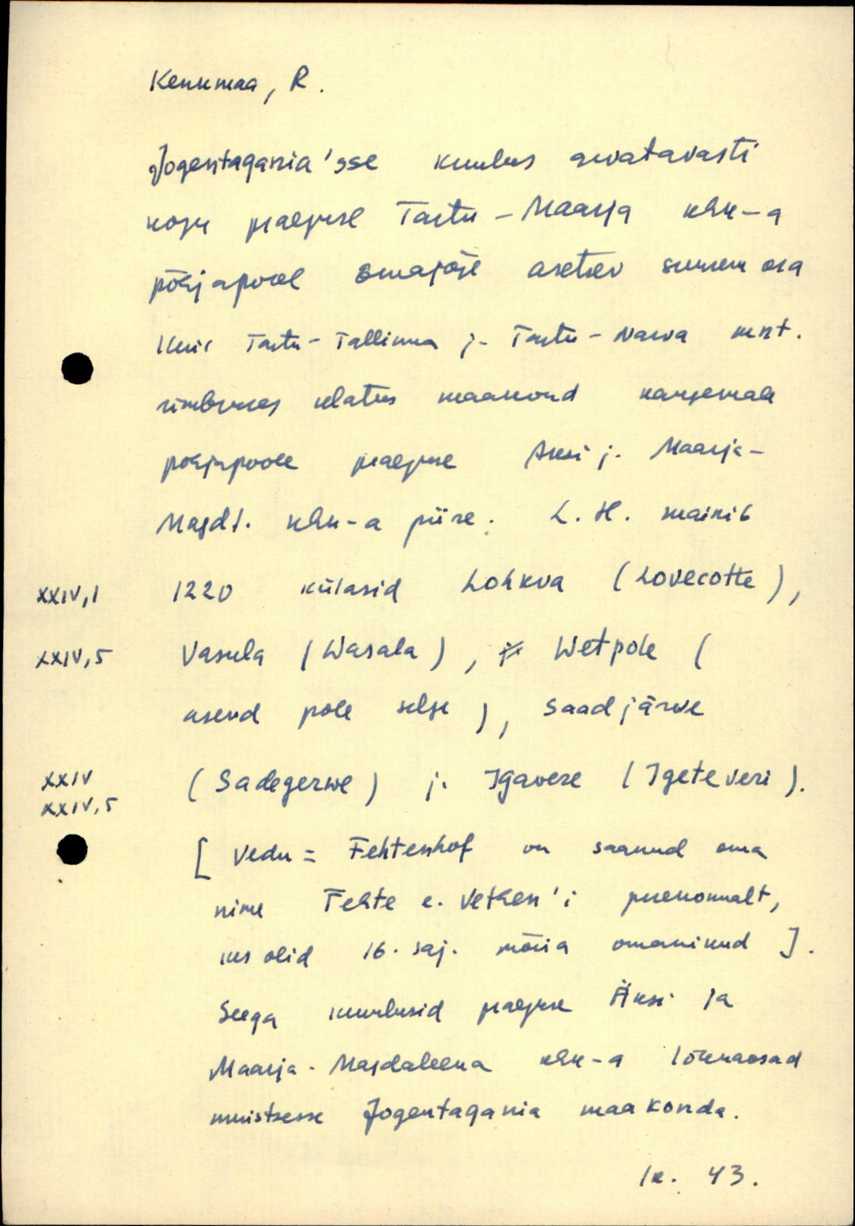 Kenkmaa, R.
Jogentagania'sse kuulus arvatavasti
kogu praeguse Tartu-Maarja khk-a
põhjapool Emajõge asetsev suurem osa
kuid Tartu-Tallinna j. Tartu-Narva mnt.
ümbruses ulatus maakond kaugemale
põhjapoole praeguse Äksi j. Maarja-
Magdl. khk-a piire. L.H. mainib
XXIV,1 1220 külasid Lohkva (Lovecotte),
XXIV,5 Vasula (Wasala), Wetpole (
asend pole selge), Saadjärve
XXIV (Sadegerwe) j. Igavere (Igeteveri).
XXIV,5
[Vedu = Fehtenhof on saanud oma
nime Fehte e. Vethen'i perekonnalt,
kes olid 16. saj. mõisa omanikud].
Seega kuulusid praeguse Äksi ja
Maarja-Magdaleena khk-a lõunaosad
muistsesse Jogentagania maakonda.
lk. 43.